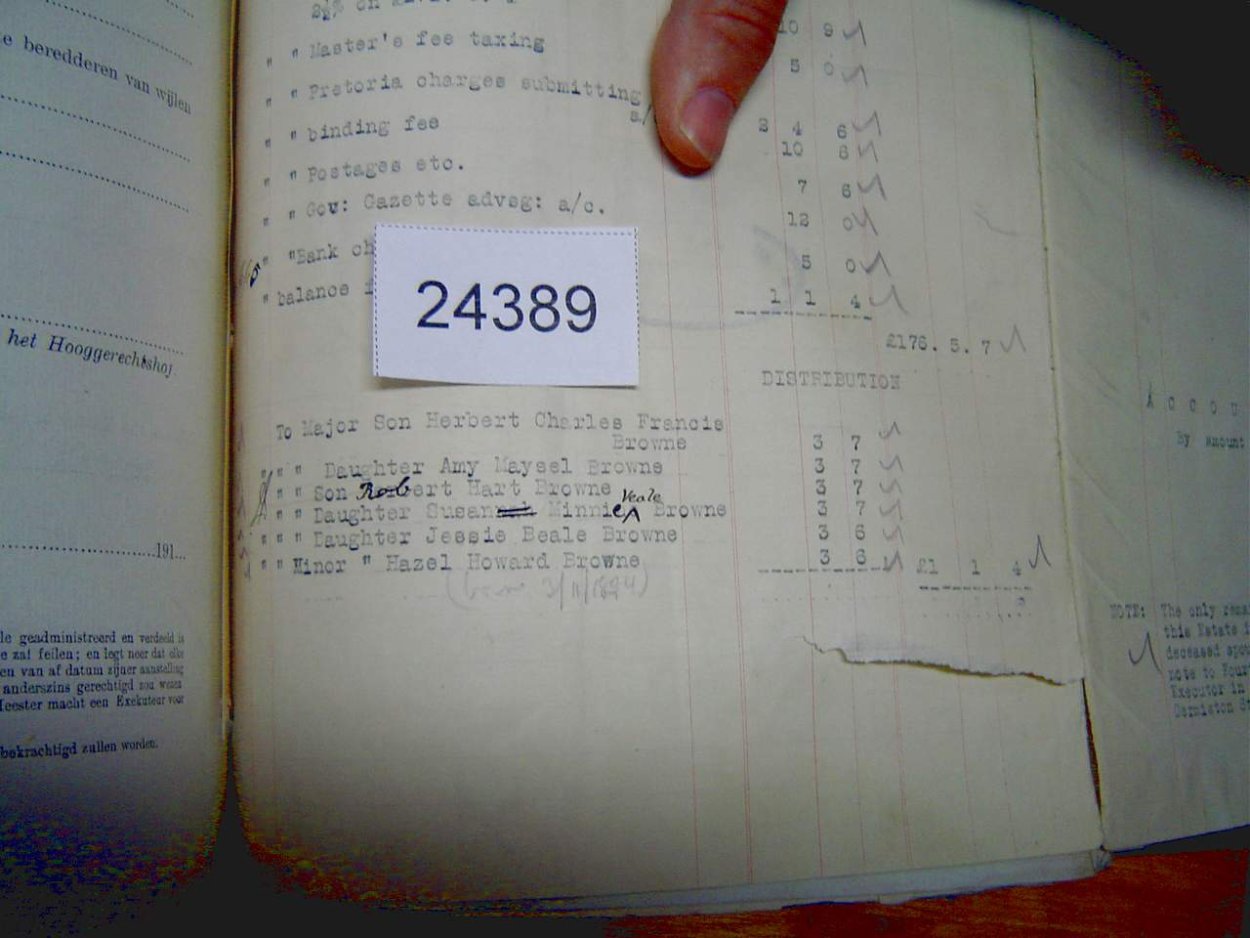 e beredderen van wijlen
het Hooggerechtshof
191...
le geadministreerd en verdeeld is
e zal feilen; en legt neer dat elke
en van af datum zijner aanstelling
anderszins gerechtigd zou wezen
Meester macht een Exekuteur voor
bekrachtigd zullen worden.
2½% on
10 9
" " Master's fee taxing 5 0
" " Pretoria charges submitting
a/ 2 4 6
" " binding fee 10 6
" " Postages etc. 7 6
" " Gov: Gazette advsg: a/c. 12 0
" "Bank ch 5 0
" balance 1 1 4
£176. 5. 7
24389
DISTRIBUTION
To Major Son Herbert Charles Francis
Browne 3 7
" " " Daughter Amy Maysel Browne 3 7
" " Son Robert Hart Browne 3 7
" " Daughter Susannah Minnie Veale Browne 3 7
" " " Daughter Jessie Beale Browne 3 6
" " Minor " Hazel Howard Browne 3 6 £1 1 4
(born 3/11/1894)
A C C O U
By amount
NOTE: The only
this Estate
deceased
note to Four
Executor in
Germiston